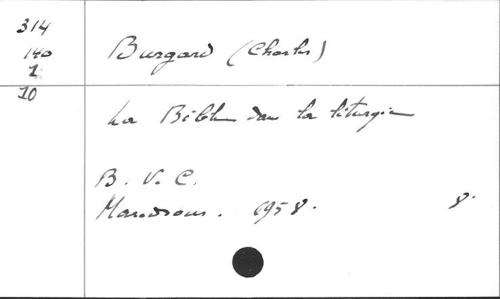 314
140
1
10
Burgard (Charles)
La Bible dans la liturgie
B. V. C.
1958. 8.